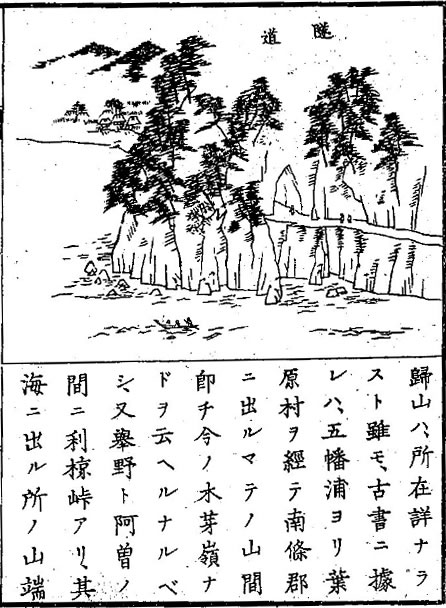 隧道
歸山ハ、所在詳ナラ
スト雖モ、古書ニ據
レハ、五幡浦ヨリ葉
原村ヲ經テ南條郡
ニ出ルマテノ山間
即チ今ノ木芽嶺ナ
ドヲ云ヘルナルベ
シ、又擧野ト阿曽ノ
間ニ利椋峠アリ、其
海ニ出ル所ノ山端